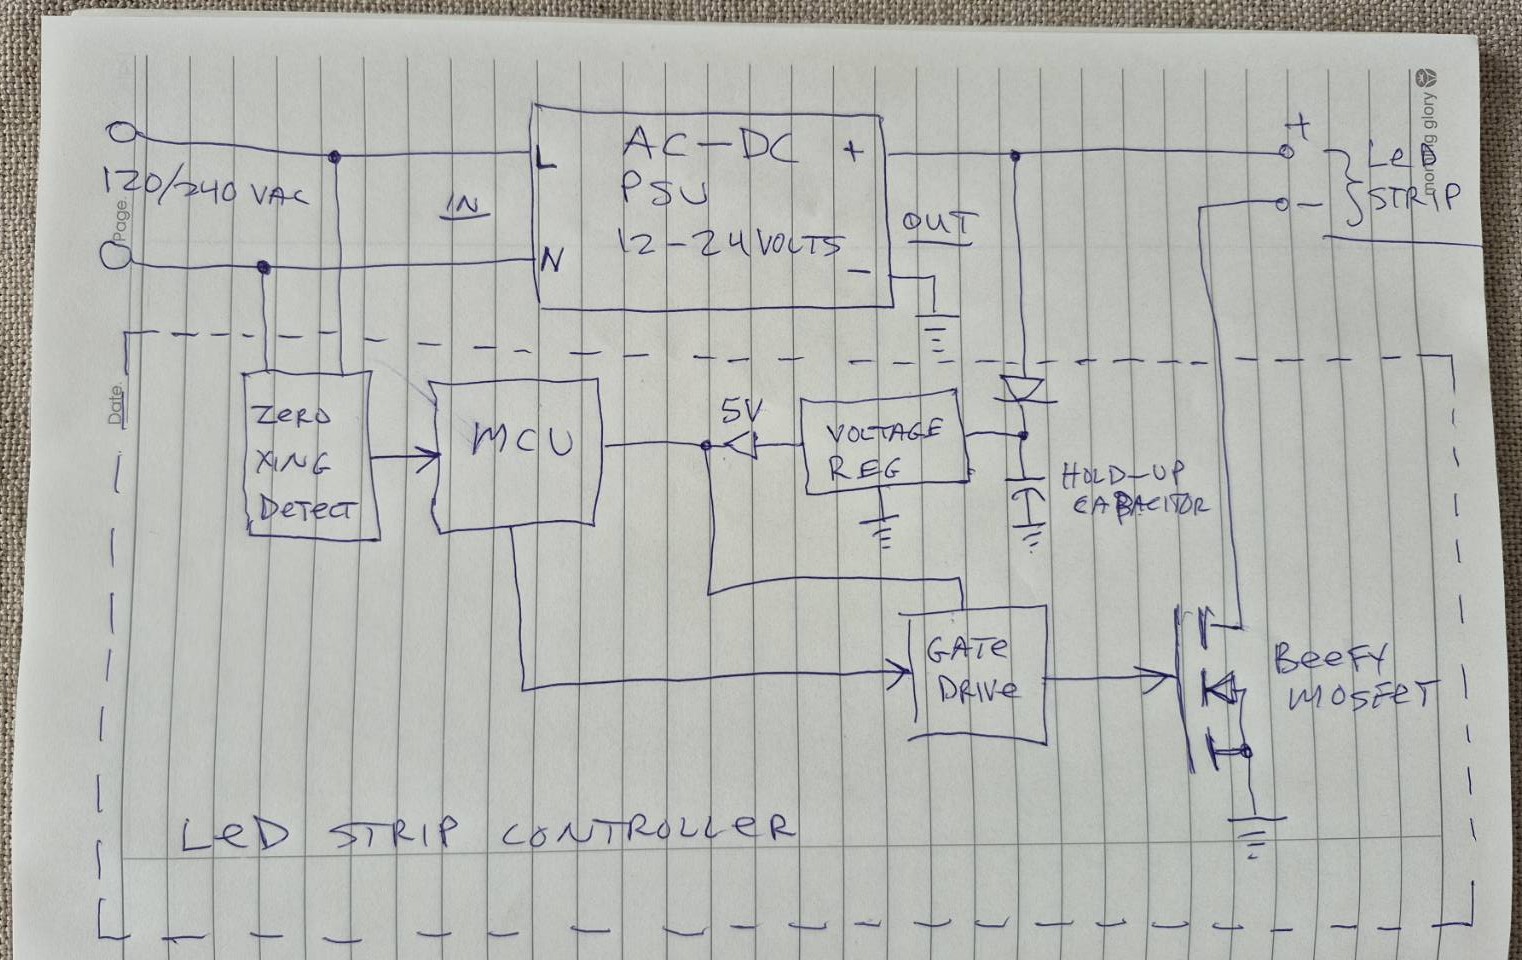 morning glory
Page.
Date.
120/240 VAC
IN
L
N
AC-DC
PSU
12-24 VOLTS
+
-
OUT
+
-
LeD
STRIP
ZeRO
XING
DeTecT
MCU
5V
VOLTAGE
REG
HOLD-UP
CAPACITOR
GATe
DRIVe
BeeFY
MOSFET
LeD STRIP CONTROLLeR